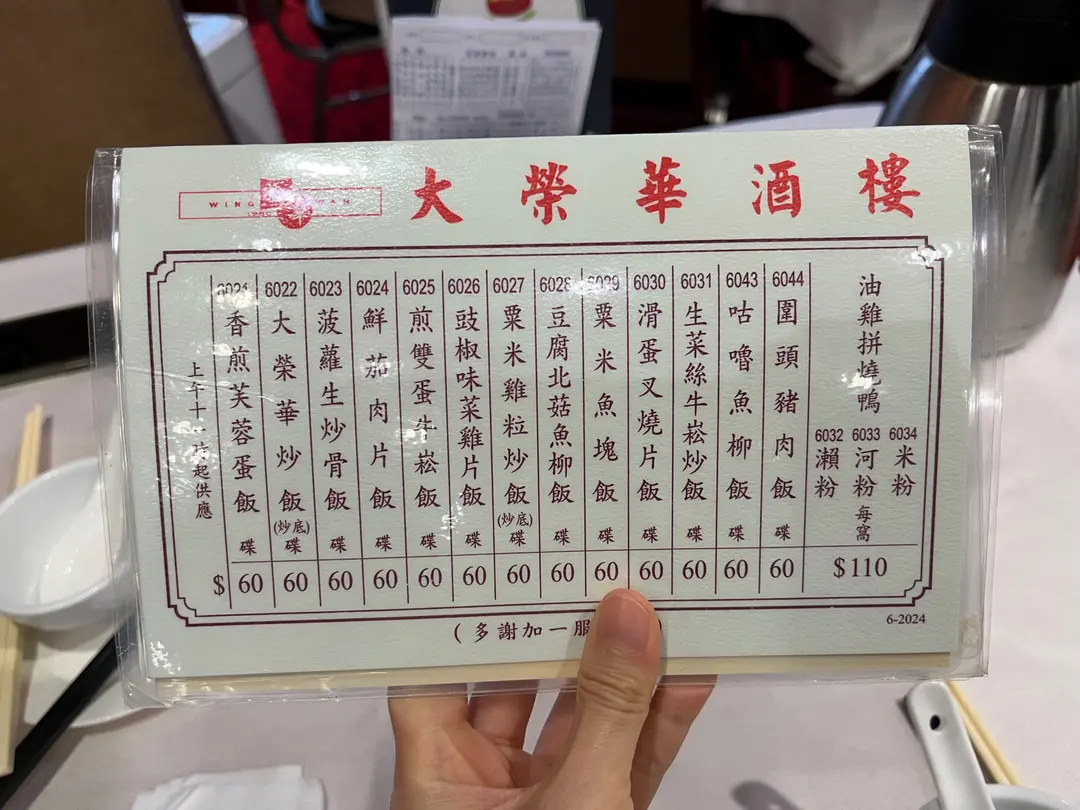 大榮華酒樓
WING
油雞拼燒鴨
6034 米粉
6033 河粉 每窩
6032 瀨粉
$110
6044 圍頭豬肉飯 碟 60
6043 咕嚕魚柳飯 碟 60
6031 生菜絲牛崧炒飯 碟 60
6030 滑蛋叉燒片飯 碟 60
6029 粟米魚塊飯 碟 60
6028 豆腐北菇魚柳飯 碟 60
6027 粟米雞粒炒飯 (炒底) 碟 60
6026 豉椒味菜雞片飯 碟 60
6025 煎雙蛋牛崧飯 碟 60
6024 鮮茄肉片飯 碟 60
6023 菠蘿生炒骨飯 碟 60
6022 大榮華炒飯 (炒底) 碟 60
6021 香煎芙蓉蛋飯 碟 $60
上午十一時起供應
(多謝加一服
6-2024